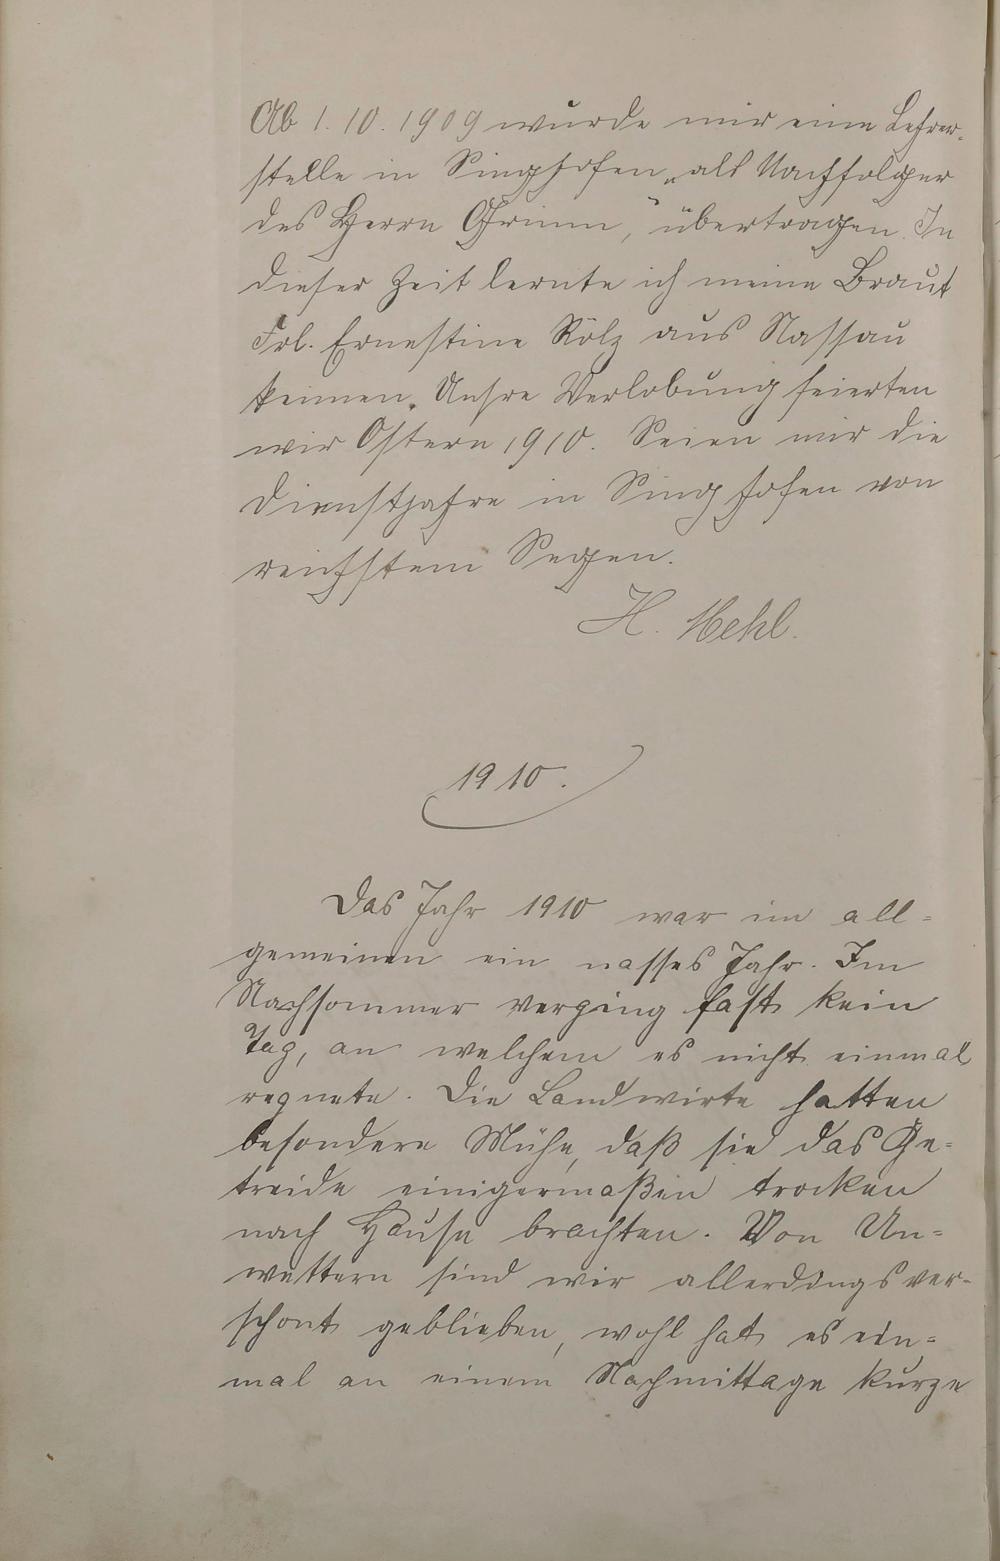 Ab 1. 10. 1909 wurde mir eine Lehrer-
stelle in Singhofen „als Nachfolger
des Herrn Grimm“, übertragen. In
dieser Zeit lernte ich meine Braut
Frl. Ernestine Rölz aus Nassau
kennen. Unsre Verlobung feierten
wir Ostern 1910. Seien mir die
Dienstjahre in Singhofen von
reichstem Segen.
H. Mehl.
1910.
Das Jahr 1910 war im all-
gemeinen ein nasses Jahr. Im
Nachsommer verging fast kein
Tag, an welchem es nicht einmal
regnete. Die Landwirte hatten
besondere Mühe, daß sie das Ge-
treide einigermaßen trocken
nach Hause brachten. Von Un-
wettern sind wir allerdings ver-
schont geblieben, wohl hat es ein-
mal an einem Nachmittage kurze